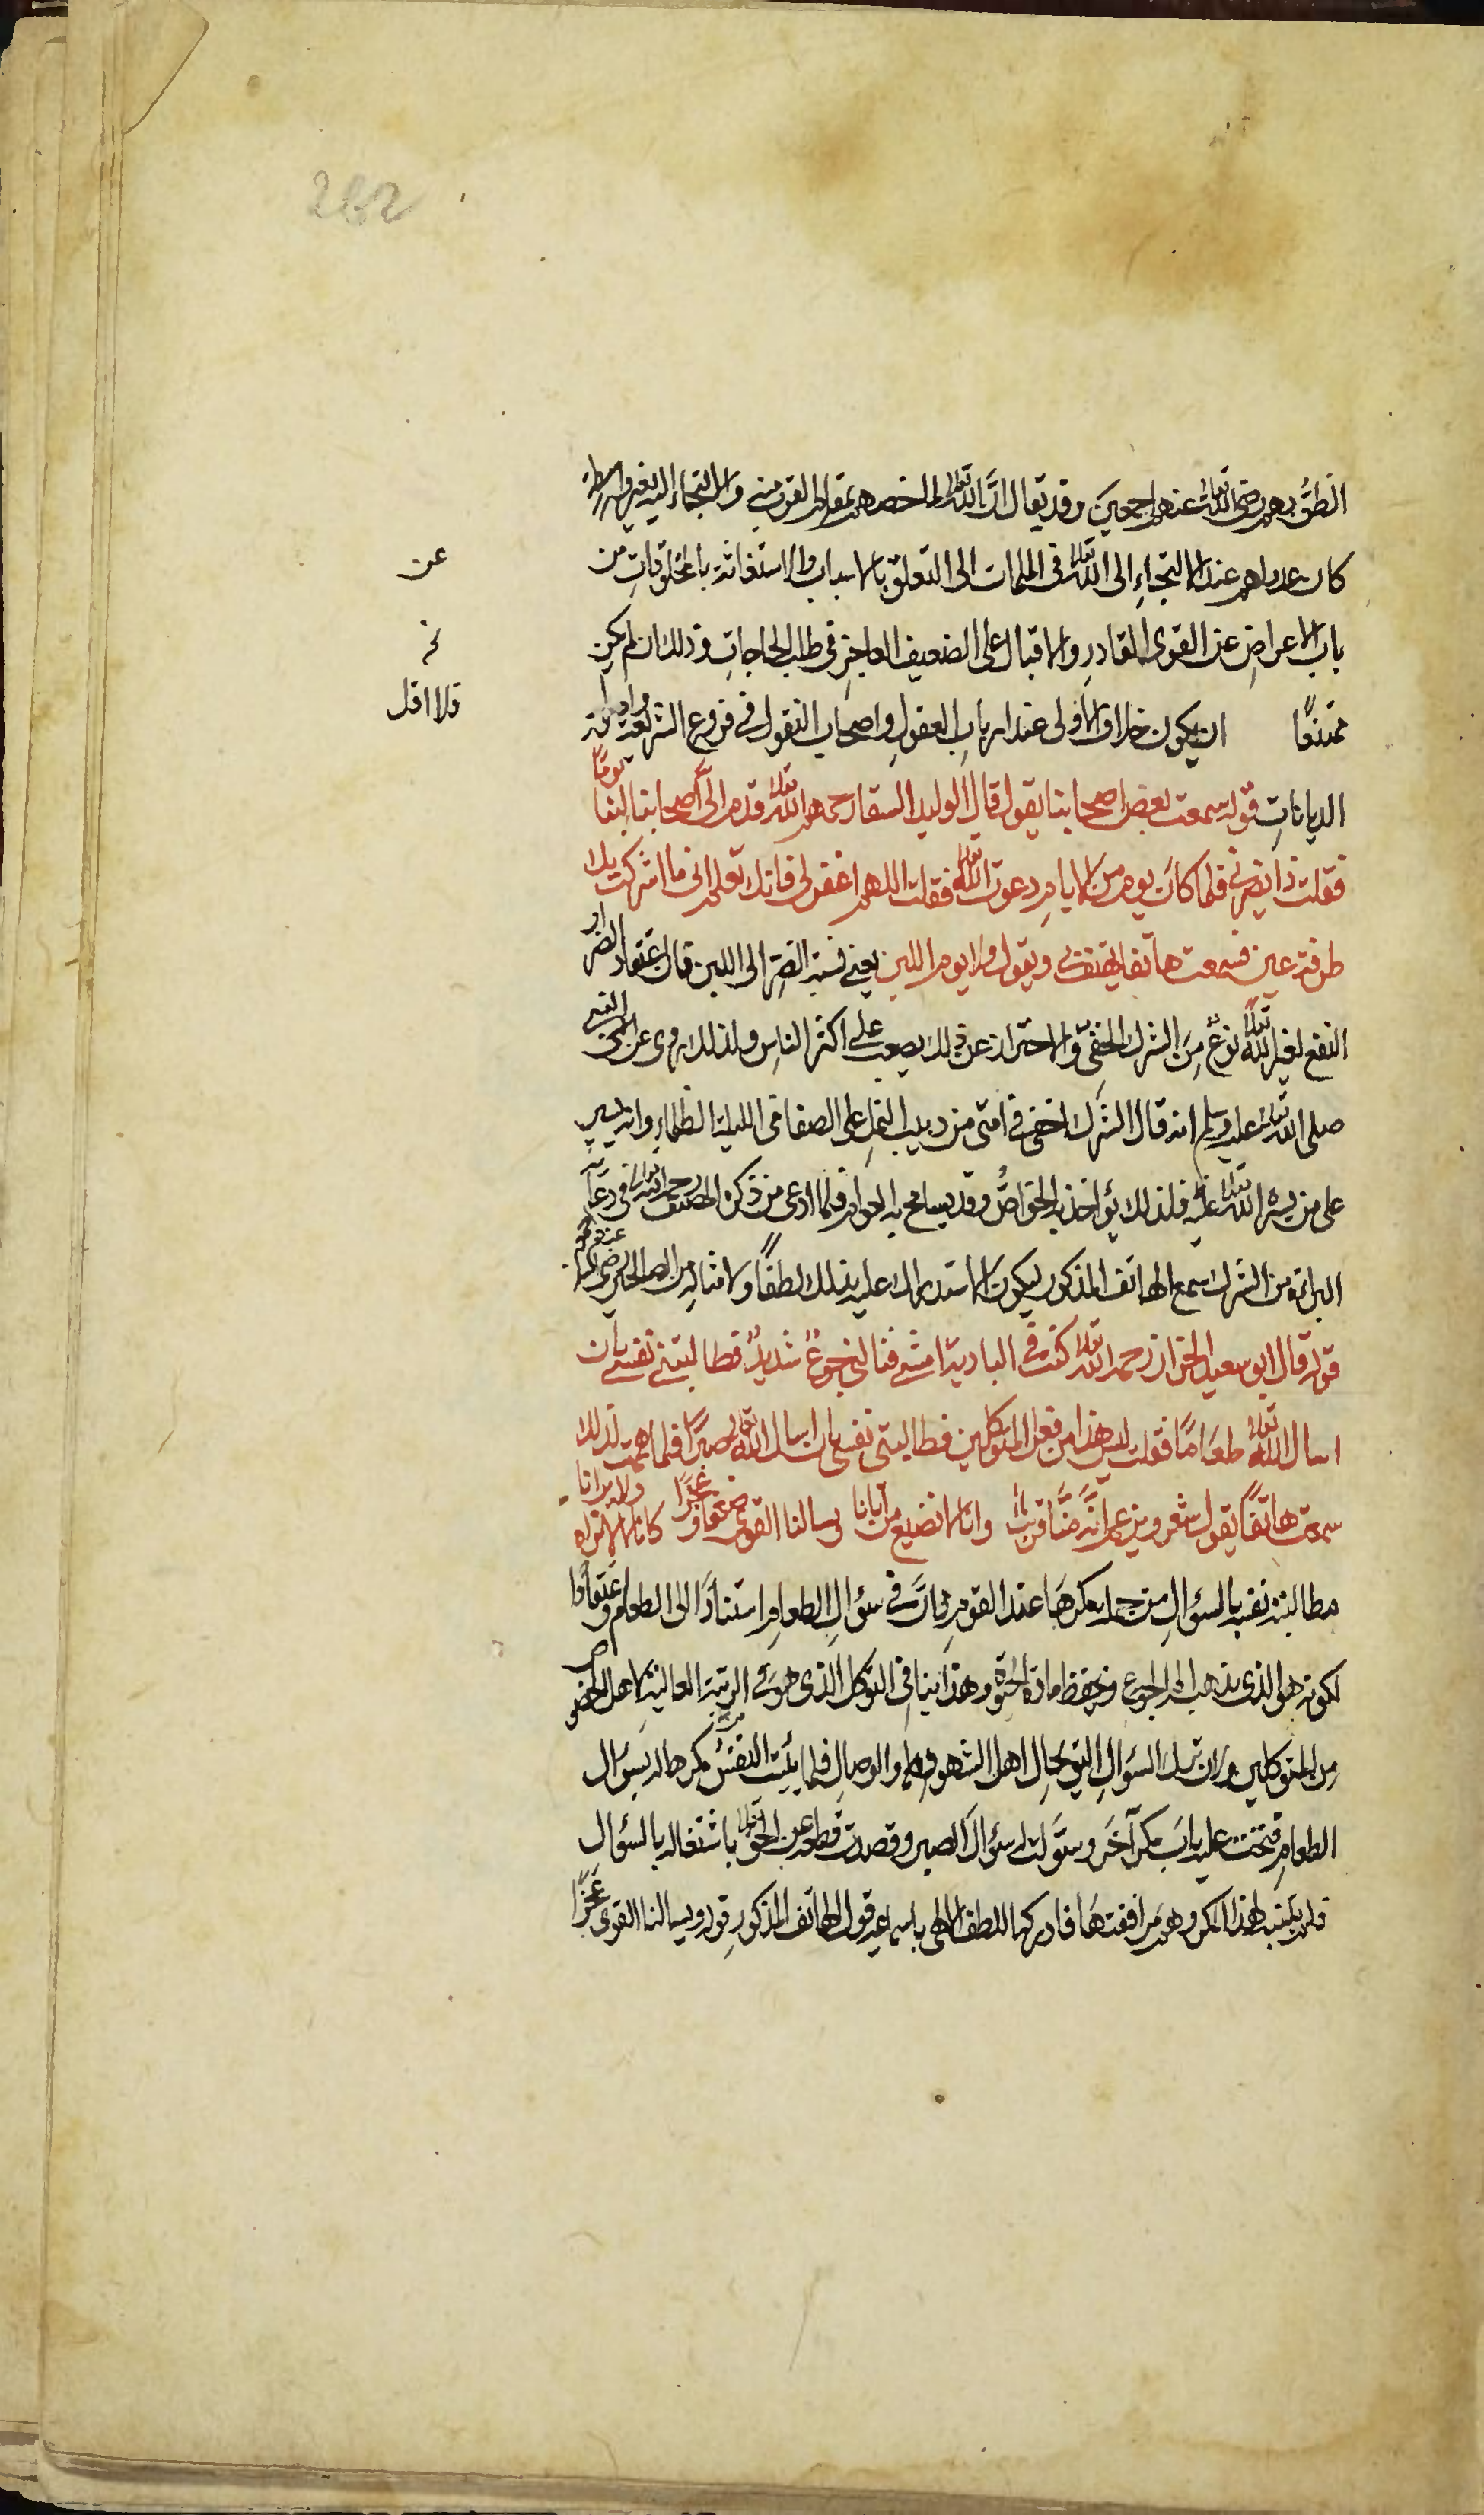 262
الظن بهم رضي الله تعالى عنهم اجمعين وقد يقال ان الله تعالى لما خصهم بمقام القرب منه والالتجاء اليه بغير واسطة
كان عدولهم عند الالتجاء الى الله تعالى في الملمات الى التعلق بالاسباب والاستغاثة بالمخلوقات من
عن
باب الاعراض عن القوى القادر والاقبال على الضعيف العاجز في طلب الحاجات وذلك ان لم يكن
ممتنعًا ان يكون خلاف الاولى عند ارباب العقول واصحاب النقول في فروع الشريعة
فلا اقل
الديانات قوله سمعت بعض اصحابنا يقول قال الوليد السقا رحمه الله تعالى قدم الى اصحابنا يومًا لبنا
فقلت ذا يضرني فلما كان يوم من الايام دعوت الله تعالى فقلت اللهم اغفر لي فانك تعلم اني ما اشركت بك
طرفة عين فسمعت هاتفا يهتف بي ويقول ولا يوم اللبن يعني نسبة الضر الى اللبن فان اعتقاد الضر او
النفع لغير الله تعالى نوع من الشرك الخفي والاحتراز عن ذلك يصعب على اكثر الناس ولذلك روى عن النبي الامى
صلى الله تعالى عليه وسلم انه قال الشرك اخفى في امتى من دبيب النمل على الصفا في الليلة الظلماء وانه ليسير
على من يسره الله تعالى عليه فلذلك يؤاخذ به الخواص وقد يسامح به العوام فلما ادعى من ذكره المصنف رحمه الله تعالى في دعائه
البراءة من الشرك سمع الهاتف المذكور ليكون الاستدراك عليه بذلك لطفًا ولامثاله من الصالحين
قوله قال ابو سعيد الخراز رحمه الله تعالى كنت في البادية امشي فنالني جوع شديد فطالبتني نفسي بان
اسال الله تعالى طعامًا فقلت ليس هذا من فعل المتوكلين فطالبتني نفسي بان اسال الله تعالى صبرًا فلما هممت لذلك
سمعت هاتفًا يقول شعر ويزعم انه منا قريب وانا لا نضيع من اتانا ويسالنا القوى ضعفا وعجزًا كانا لا نراه ولا يرانا
مطالبته نفسه بالسؤال من جملة مكرها عند القوم فان في سؤال الطعام استنادًا الى الطعام واعتقادا
لكونه هو الذي يذهب الم الجوع ويحفظ مادة الحيوة وهذا ينافي التوكل الذي هو في الرتبة العالية لاهل الخصوص
من المتوكلين وان ترك السؤال اليق بحال اهل الشهود والوصال فلما يئست النفس من مكرها له بسؤال
الطعام فتحت عليه باب مكر آخر وسولت له سؤال الصبر وقصدت قطعه عن الحق تعالى باشتغاله بالسؤال
فلم يتنبه لهذا المكر وهم مرافقتها فادركه اللطف الالهى باسماعه قول الهاتف المذكور قوله ويسالنا القوى عجزًا